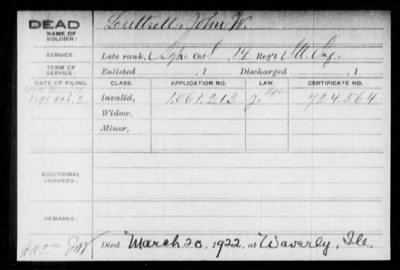 DEAD
NAME OF
SOLDIER:
Louttrell, John W.
SERVICE:
Late rank, Co. 14 Reg't Ill Inf.
TERM OF
SERVICE:
Enlisted , 1 Discharged , 1
DATE OF FILING. CLASS. APPLICATION NO. LAW. CERTIFICATE NO.
1891 Oct. 2. Invalid, 1,061,213 724,864
Widow,
Minor,
ADDITIONAL
SERVICES:
REMARKS:
Died March 20, 1922, at Waverly, Ill.